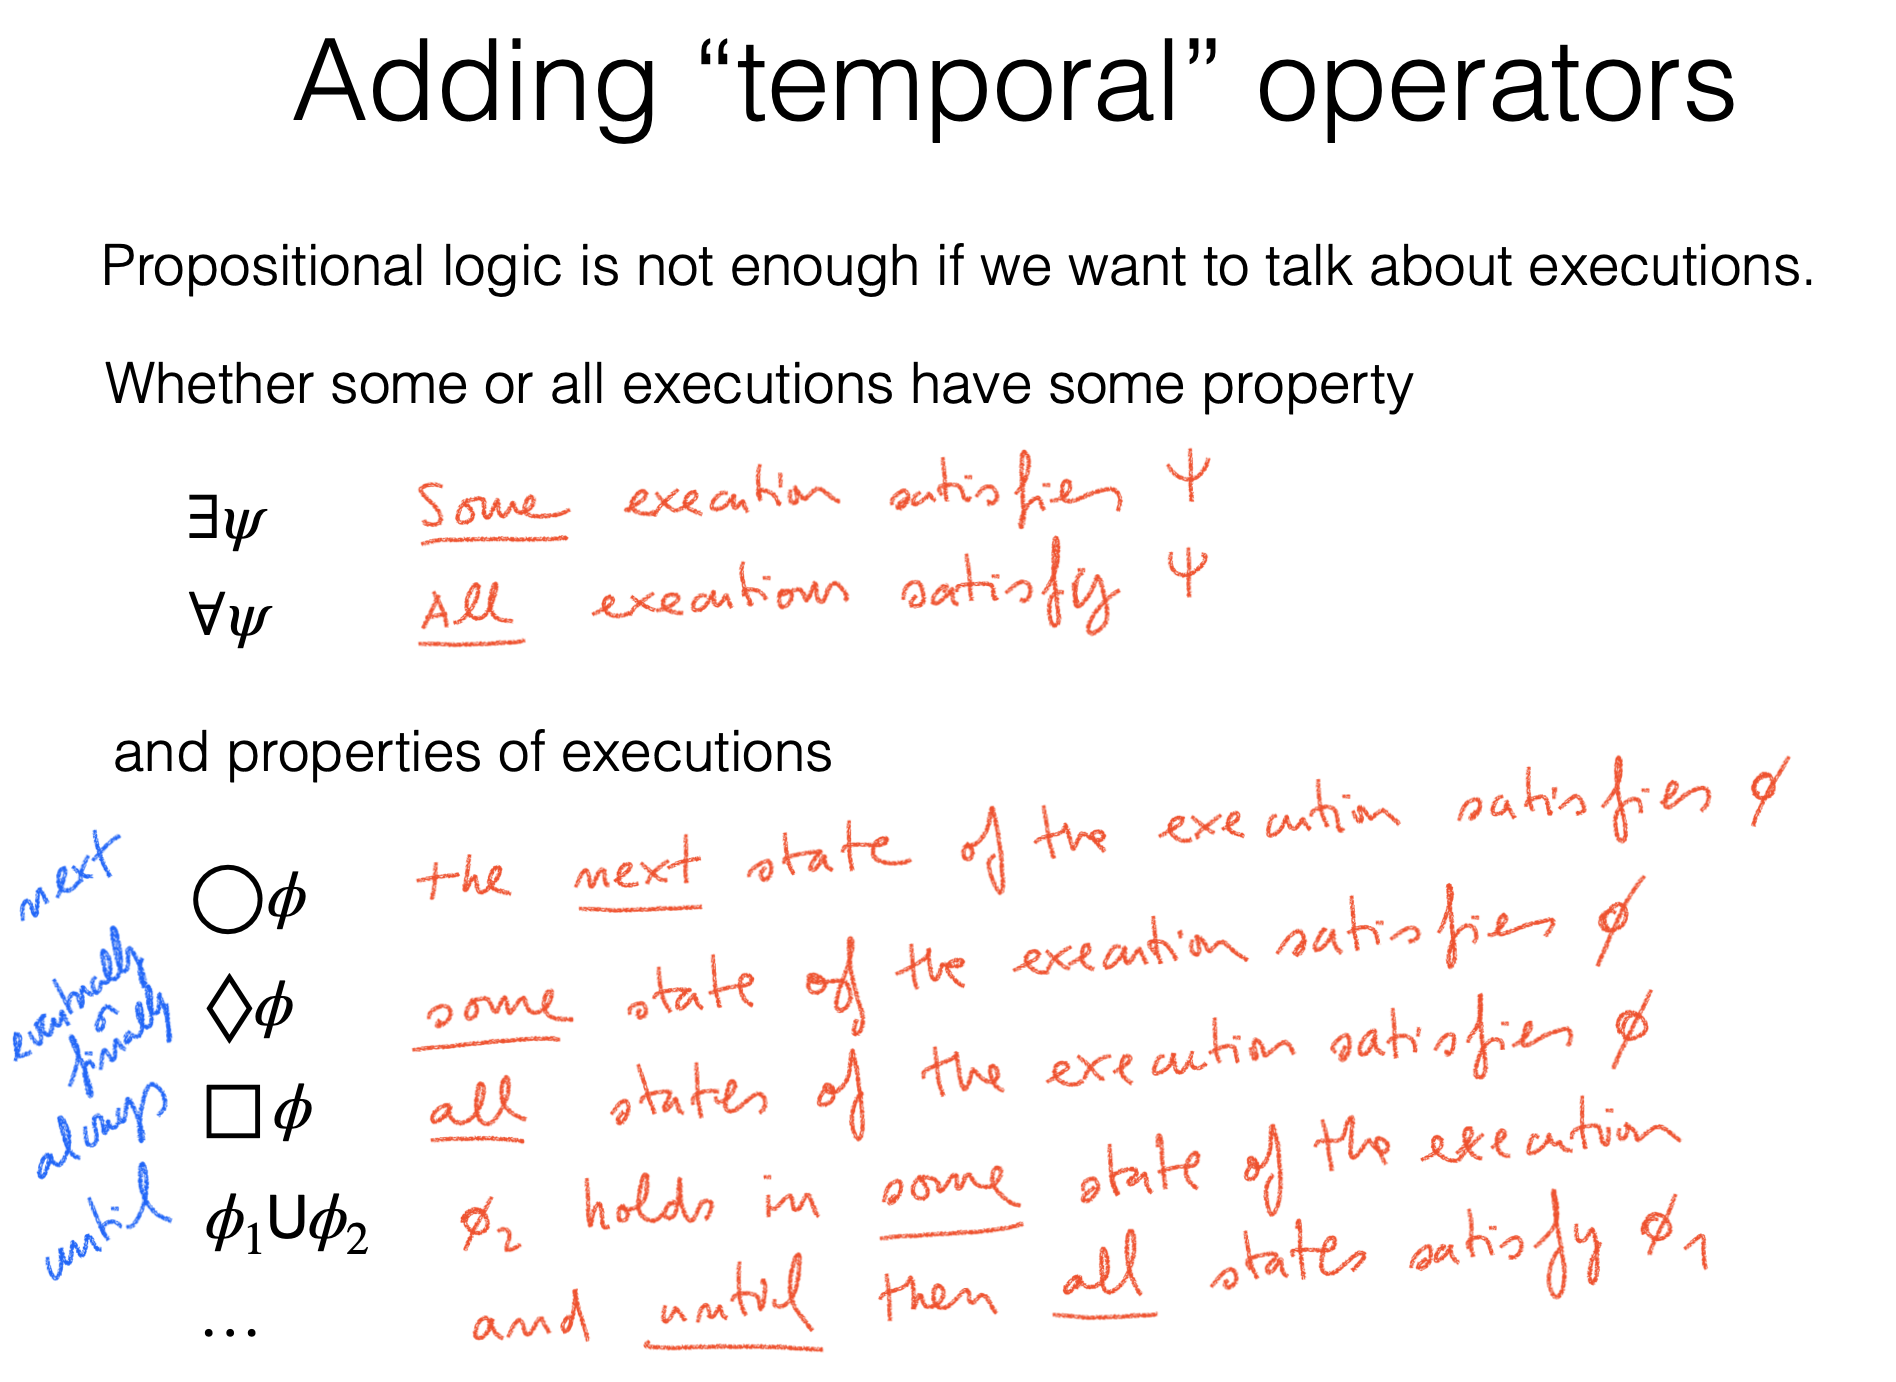 Adding “temporal” operators
Propositional logic is not enough if we want to talk about executions.
Whether some or all executions have some property
∃ψ Some execution satisfies ψ
∀ψ All executions satisfy ψ
and properties of executions
next ◯ϕ the next state of the execution satisfies ϕ
eventually or finally ◇ϕ some state of the execution satisfies ϕ
always □ϕ all states of the execution satisfies ϕ
until ϕ₁Uϕ₂ ϕ₂ holds in some state of the execution
… and until then all states satisfy ϕ₁